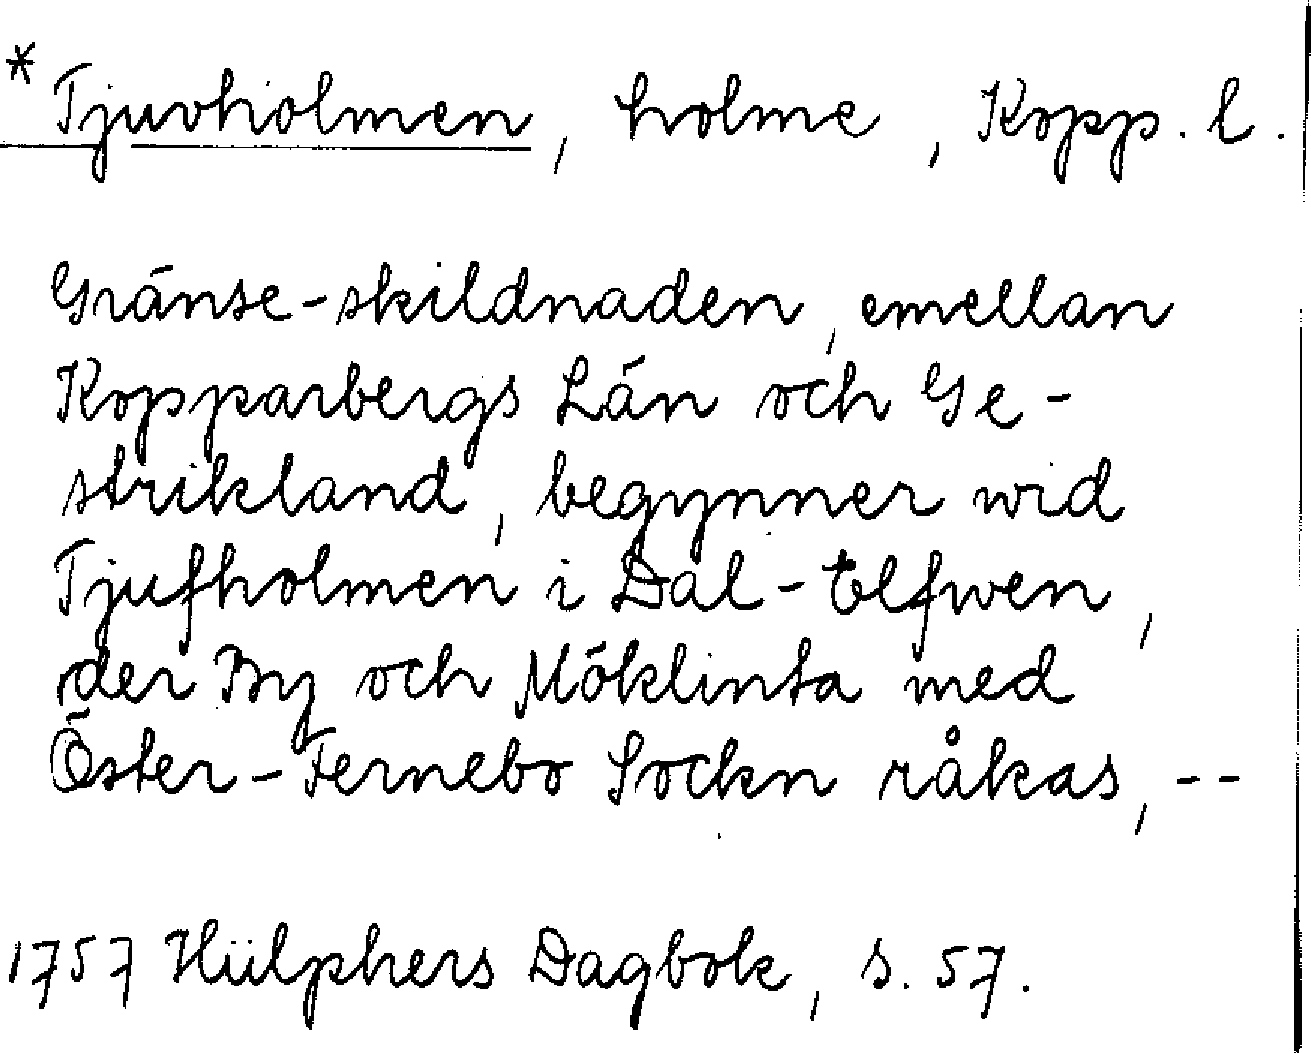 * Tjuvholmen, holme, Kopp. l.
Gränse-skildnaden, emellan
Kopparbergs Län och Ge-
strikland, begynner wid
Tjufholmen i Dal-Elfwen,
der By och Möklinta med
Öster-Fernebo Sockn råkas, --
1757 Hülphers Dagbok, s. 57.